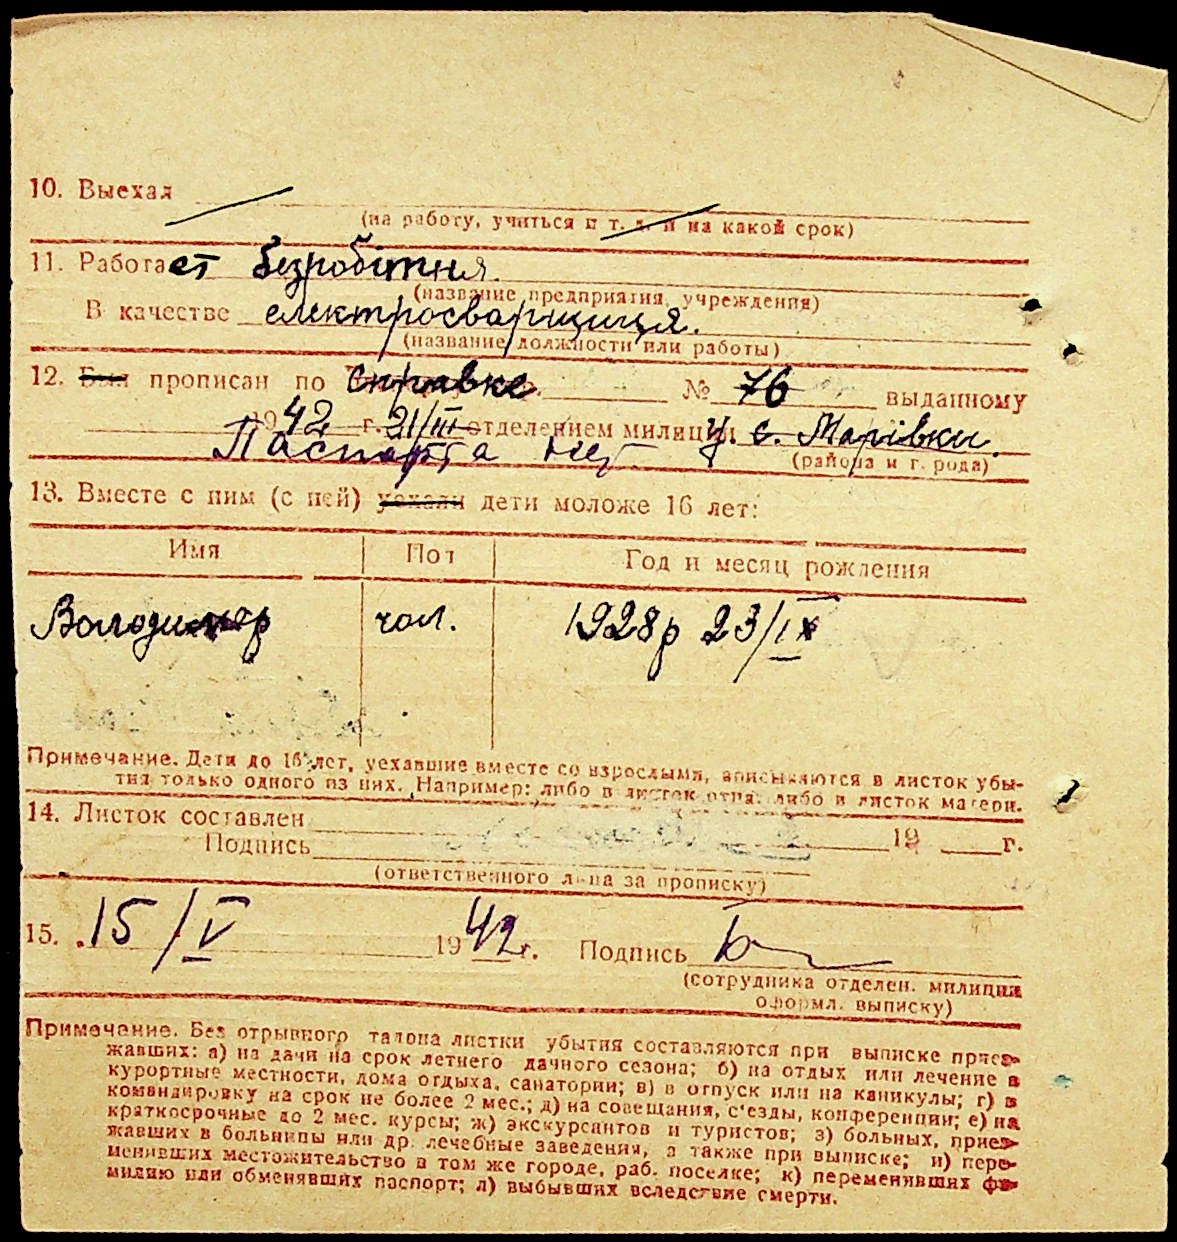 10. Выехал
(на работу, учиться и т. д. и на какой срок)
11. Работает безробітня.
(название предприятия, учреждения)
В качестве електросварщиця.
(название должности или работы)
12. Был прописан по справке № 76 выданному
1942 г. 21/III отделением милиции у. с. Марівки.
Паспорта нет (района и города)
13. Вместе с ним (с ней) уехали дети моложе 16 лет:
Имя Пол Год и месяц рождения
Володимер чол. 1928р 23/IX
Примечание. Дети до 16 лет, уехавшие вместе со взрослыми, вписываются в листок убы-
тия только одного из них. Например: либо в листок отца, либо в листок матери.
14. Листок составлен 19 г.
Подпись
(ответственного лица за прописку)
15. 15/V 1942 г. Подпись
(сотрудника отделен. милиции
оформл. выписку)
Примечание. Без отрывного талона листки убытия составляются при выписке приез-
жавших: а) на дачи на срок летнего дачного сезона; б) на отдых или лечение в
курортные местности, дома отдыха, санатории; в) в отпуск или на каникулы; г) в
командировку на срок не более 2 мес.; д) на совещания, с'езды, конференции; е) на
краткосрочные до 2 мес. курсы; ж) экскурсантов и туристов; з) больных, приез-
жавших в больницы или др. лечебные заведения, а также при выписке; и) пере-
менивших местожительство в том же городе, раб. поселке; к) переменивших фа-
милию или обменявших паспорт; л) выбывших вследствие смерти.